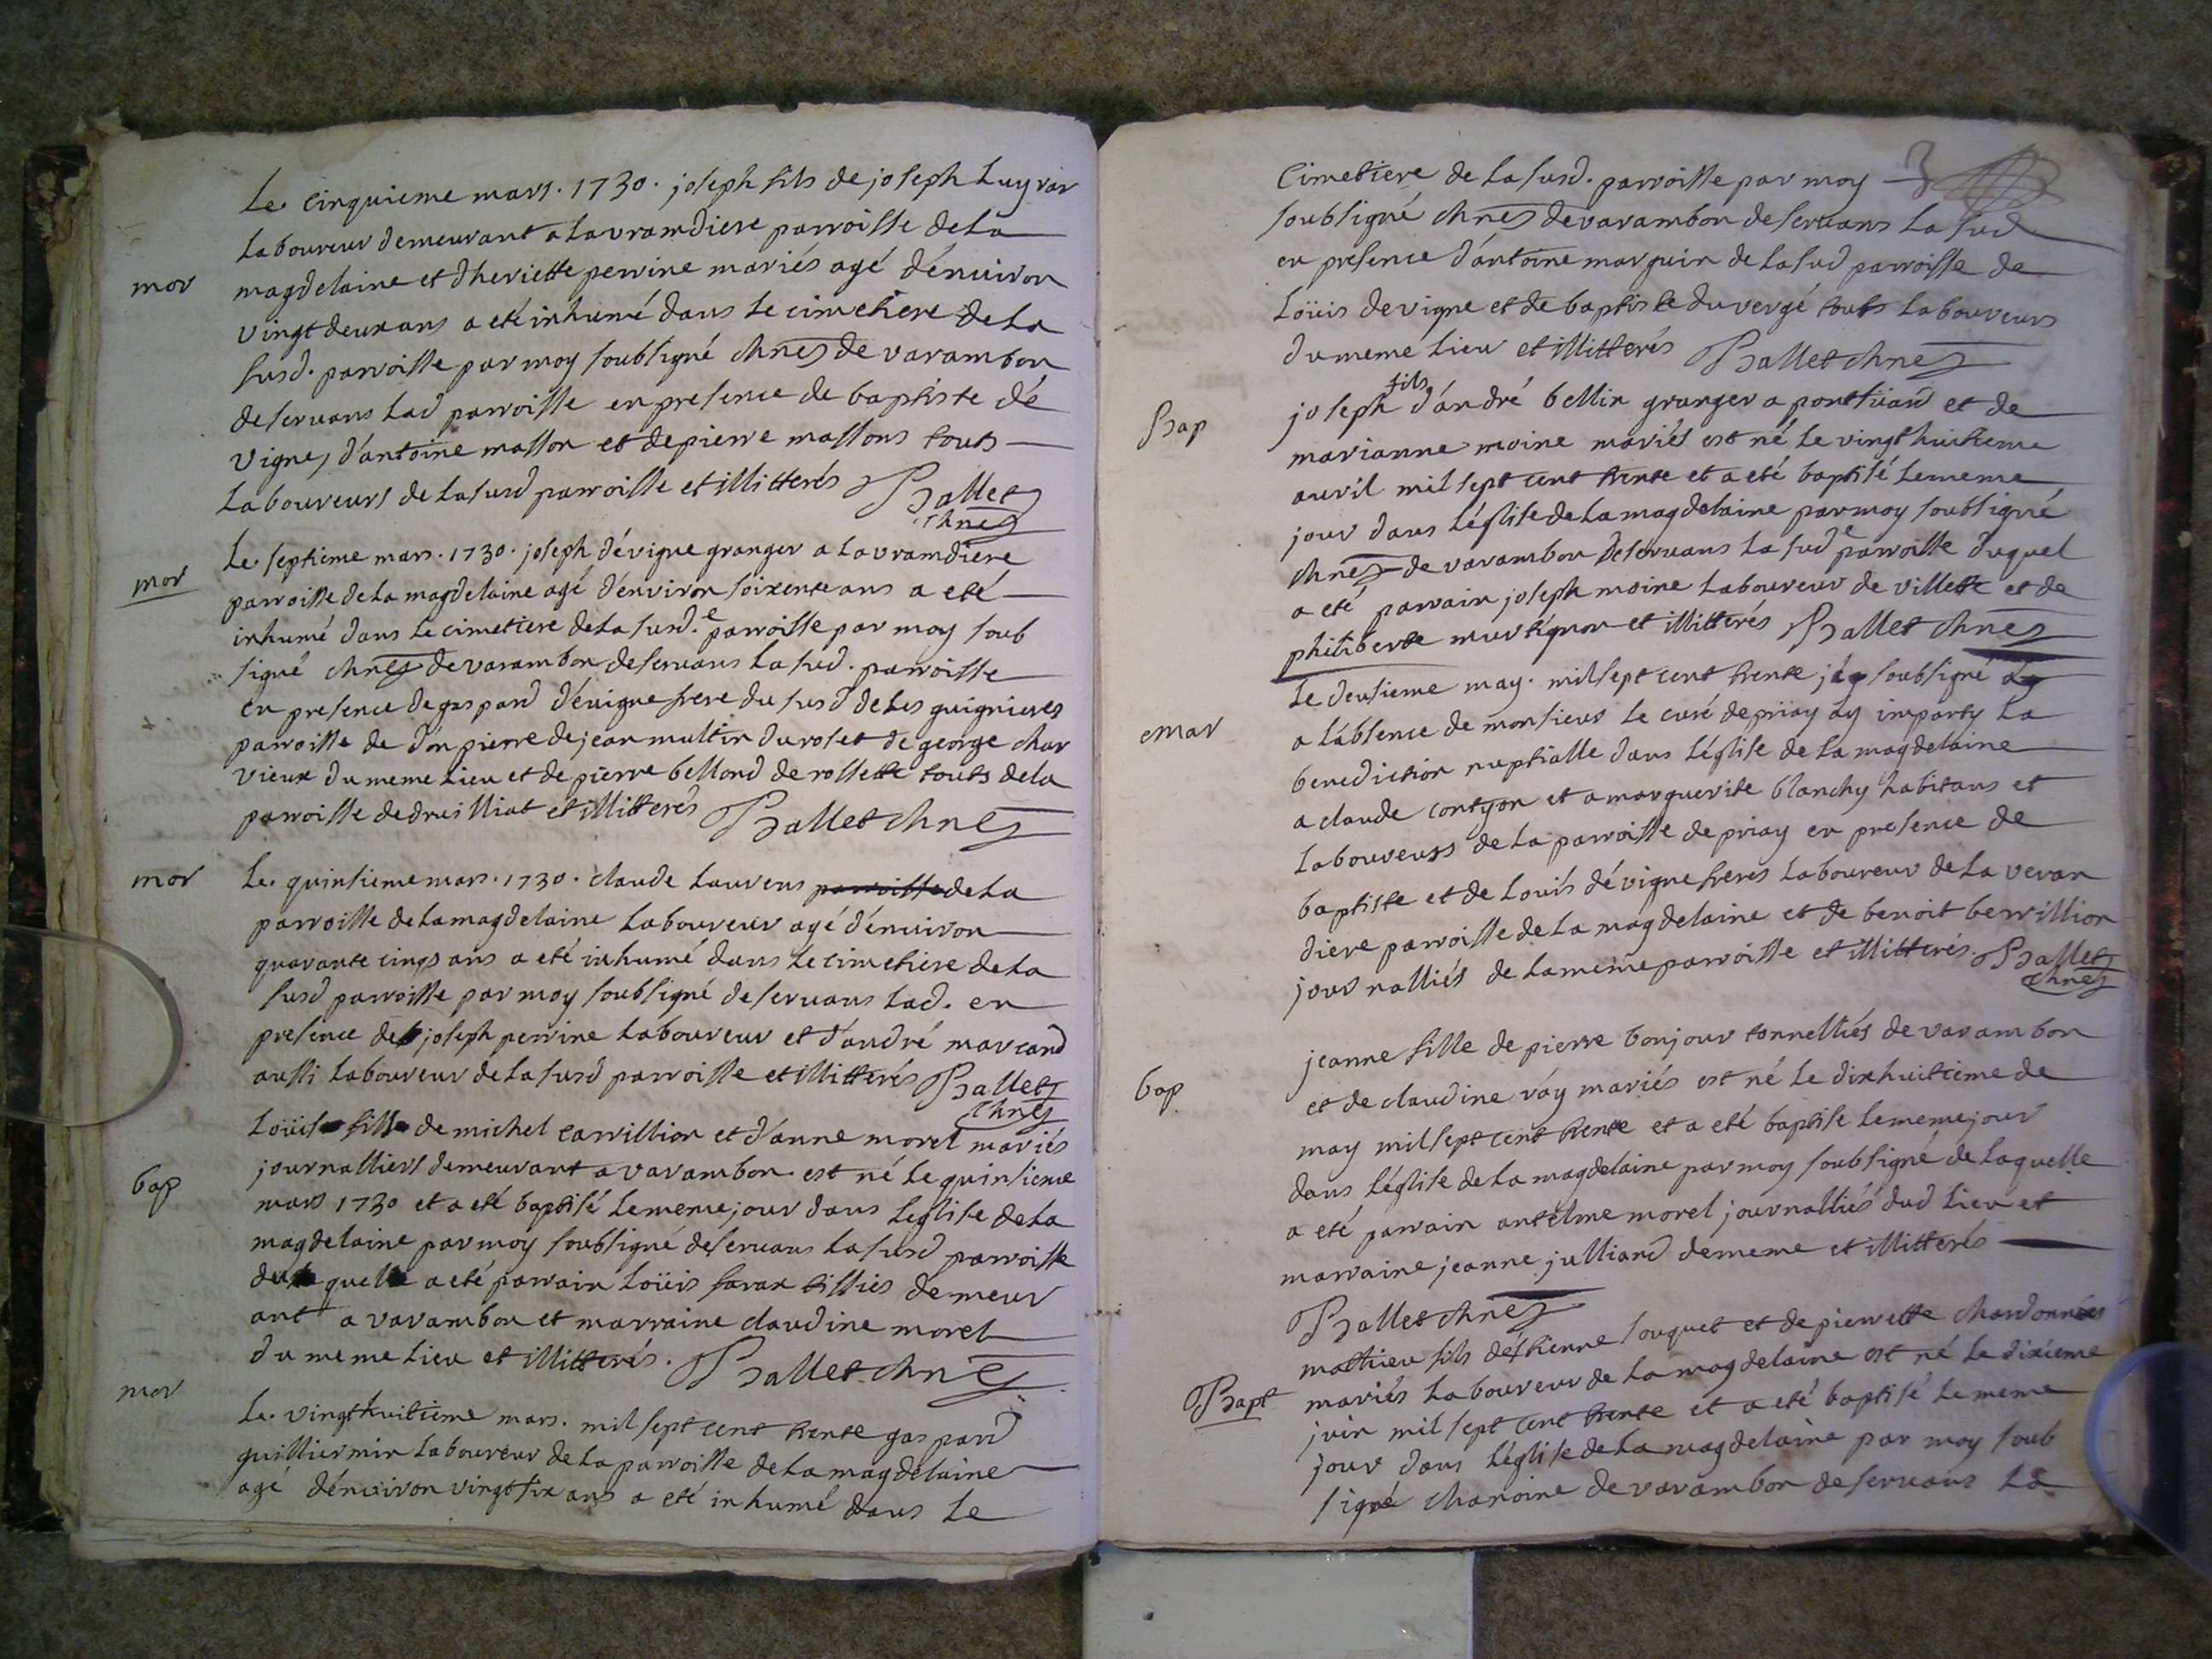 Le cinquieme mars. 1730. joseph fils de joseph Luyvar
laboureur demeurant a la vramdiere parroisse de la
mor
magdelaine et dheriette perrine mariés agé d'environ
vingt deux ans a eté inhumé dans le cimetiere de la
susd. parroisse par moy soubsigné chnes de varambon
deservans lad parroisse en presence de baptiste dé
vigne, d'antoine masson et de pierre massons touts
laboureurs de la susd parroisse et illitterés Ballet
chnes
Le septieme mars. 1730. joseph dévigne granger a la vramdiere
mor
parroisse de la magdelaine agé d'environ soixente ans a eté
inhumé dans le cimetiere de la susd.e parroisse par moy soub
signé chnes de varambon deservans la sud. parroisse
en presence de gaspard dévigne frere du susd de les guignieres
parroisse de d'on pierre de jean multin du roset de george char
vieux du meme lieu et de pierre bellond de rossette touts de la
parroisse de druilliat et illitterés Ballet chnes
mor
Le quinsieme mars. 1730. claude laurens parroisse de la
parroisse de la magdelaine laboureur agé d'environ
quarante cinqs ans a eté inhumé dans le cimetiere de la
susd parroisse par moy soubsigné deservans lad. en
presence de joseph perrine laboureur et d'andré marcand
aussi laboureur de la susd parroisse et illitterés Ballet
chnes
Loüis fills de michel carrillion et d'anne morel mariés
journalliers demeurant a varambon est né le quinsieme
bap
mars 1730 et a eté baptisé le meme jour dans l'eglise de la
magdelaine par moy soubsigné deservans la susd parroisse
duquel a eté parrain Loüis favax tissiés demeur
ant a varambon et marraine claudine morel
du meme lieu et illitterés. Ballet chnes
mor
Le vingthuitieme mars. mil sept cent trente gaspard
guilliermin laboureur de la parroisse de la magdelaine
agé d'environ vingt six ans a eté inhumé dans le
cimetiere de la susd. parroisse par moy 3
soubsigné chnes de varambon deservans la sud
en presence d'antoine marguin de la sud parroisse de
Loüis devigne et de baptiste du vergé touts laboureurs
du meme lieu et illitterés Ballet chnes
Bap
joseph fils d'andré bellin granger a pontsüard et de
marianne moine mariés est né le vingt huitieme
auvril mil sept cent trente et a eté baptisé le meme
jour dans l'église de la magdelaine par moy soubsigné
chnes de varambon deservans la sude parroisse duquel
a eté parrain joseph moine laboureur de villette et de
philiberte murtignon et illitterés Ballet chnes
Le deusieme may. mil sept cent trente je soubsigné ay
mar
a l'absence de monsieur le curé de priay ay imparty la
benediction nuptialle dans l'église de la magdelaine
a claude contyon et a marguerite blanchy habitans et
laboureurs de la parroisse de priay en presence de
baptiste et de Louis dévigne freres laboureur de la veran
diere parroisse de la magdelaine et de benoit berrillion
journalliés de la meme parroisse et illitterés. Ballet
chnes
jeanne fille de pierre bonjour tonnelliés de varambon
bap
et de claudine ray mariés est né le dixhuitieme de
may mil sept cent trente et a eté baptise le meme jour
dans l'église de la magdelaine par moy soubsigné de laquelle
a eté parrain antelme morel journalliés dud lieu et
marraine jeanne julliand de meme et illitterés
Ballet chnes
mattieu fils d'étienne souquet et de pierrette chardonnés
Bapt
mariés laboureur de la magdelaine est né le dixieme
juin mil sept cent trente et a eté baptisé le meme
jour dans l'église de la magdelaine par moy soub
signé chanoine de varambon deservans la